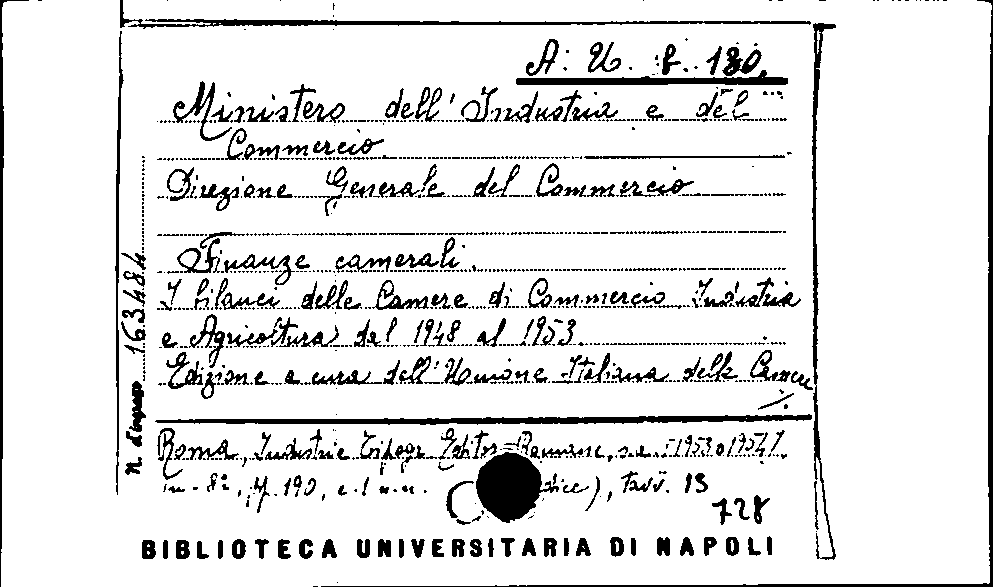 A. U. f. 180.
Ministero dell'Industria e del
Commercio.
Direzione Generale del Commercio
Finanze camerali.
I bilanci delle Camere di Commercio Industria
e Agricoltura dal 1948 al 1953.
Edizione a cura dell'Unione Italiana delle Camere
./.
N. d'ingresso 163484
Roma, Industrie Tipogr. Editor. Romane, s.a. [1953 o 1954].
in-8º, pp. 190, e 1 n.n. dice), tavv. 13
728
BIBLIOTECA UNIVERSITARIA DI NAPOLI